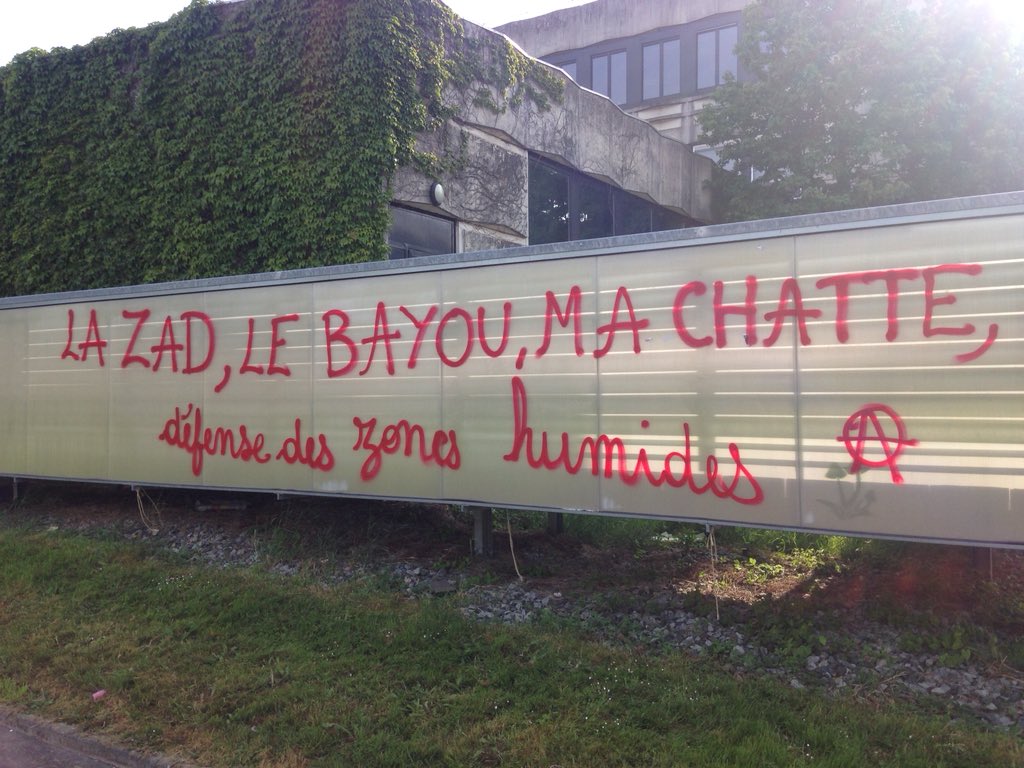 LA ZAD, LE BAYOU, MA CHATTE,
défense des zones humides Ⓐ